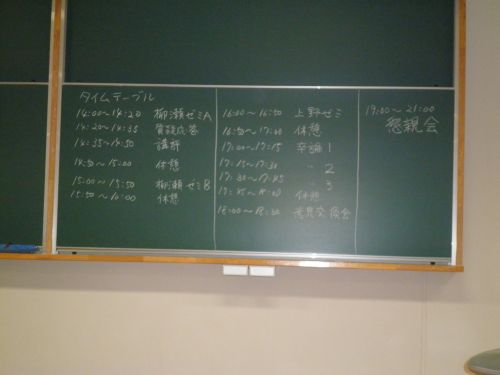 タイムテーブル
14:00～14:20 柳瀬ゼミA
14:20～14:35 質疑応答
14:35～14:50 講評
14:50～15:00 休憩
15:00～15:50 柳瀬ゼミB
15:50～16:00 休憩
16:00～16:50 上野ゼミ
16:50～17:00 休憩
17:00～17:15 卒論1
17:15～17:30 〃 2
17:30～17:45 〃 3
17:45～18:00 休憩
18:00～18:30 意見交換会
19:00～21:00
懇親会